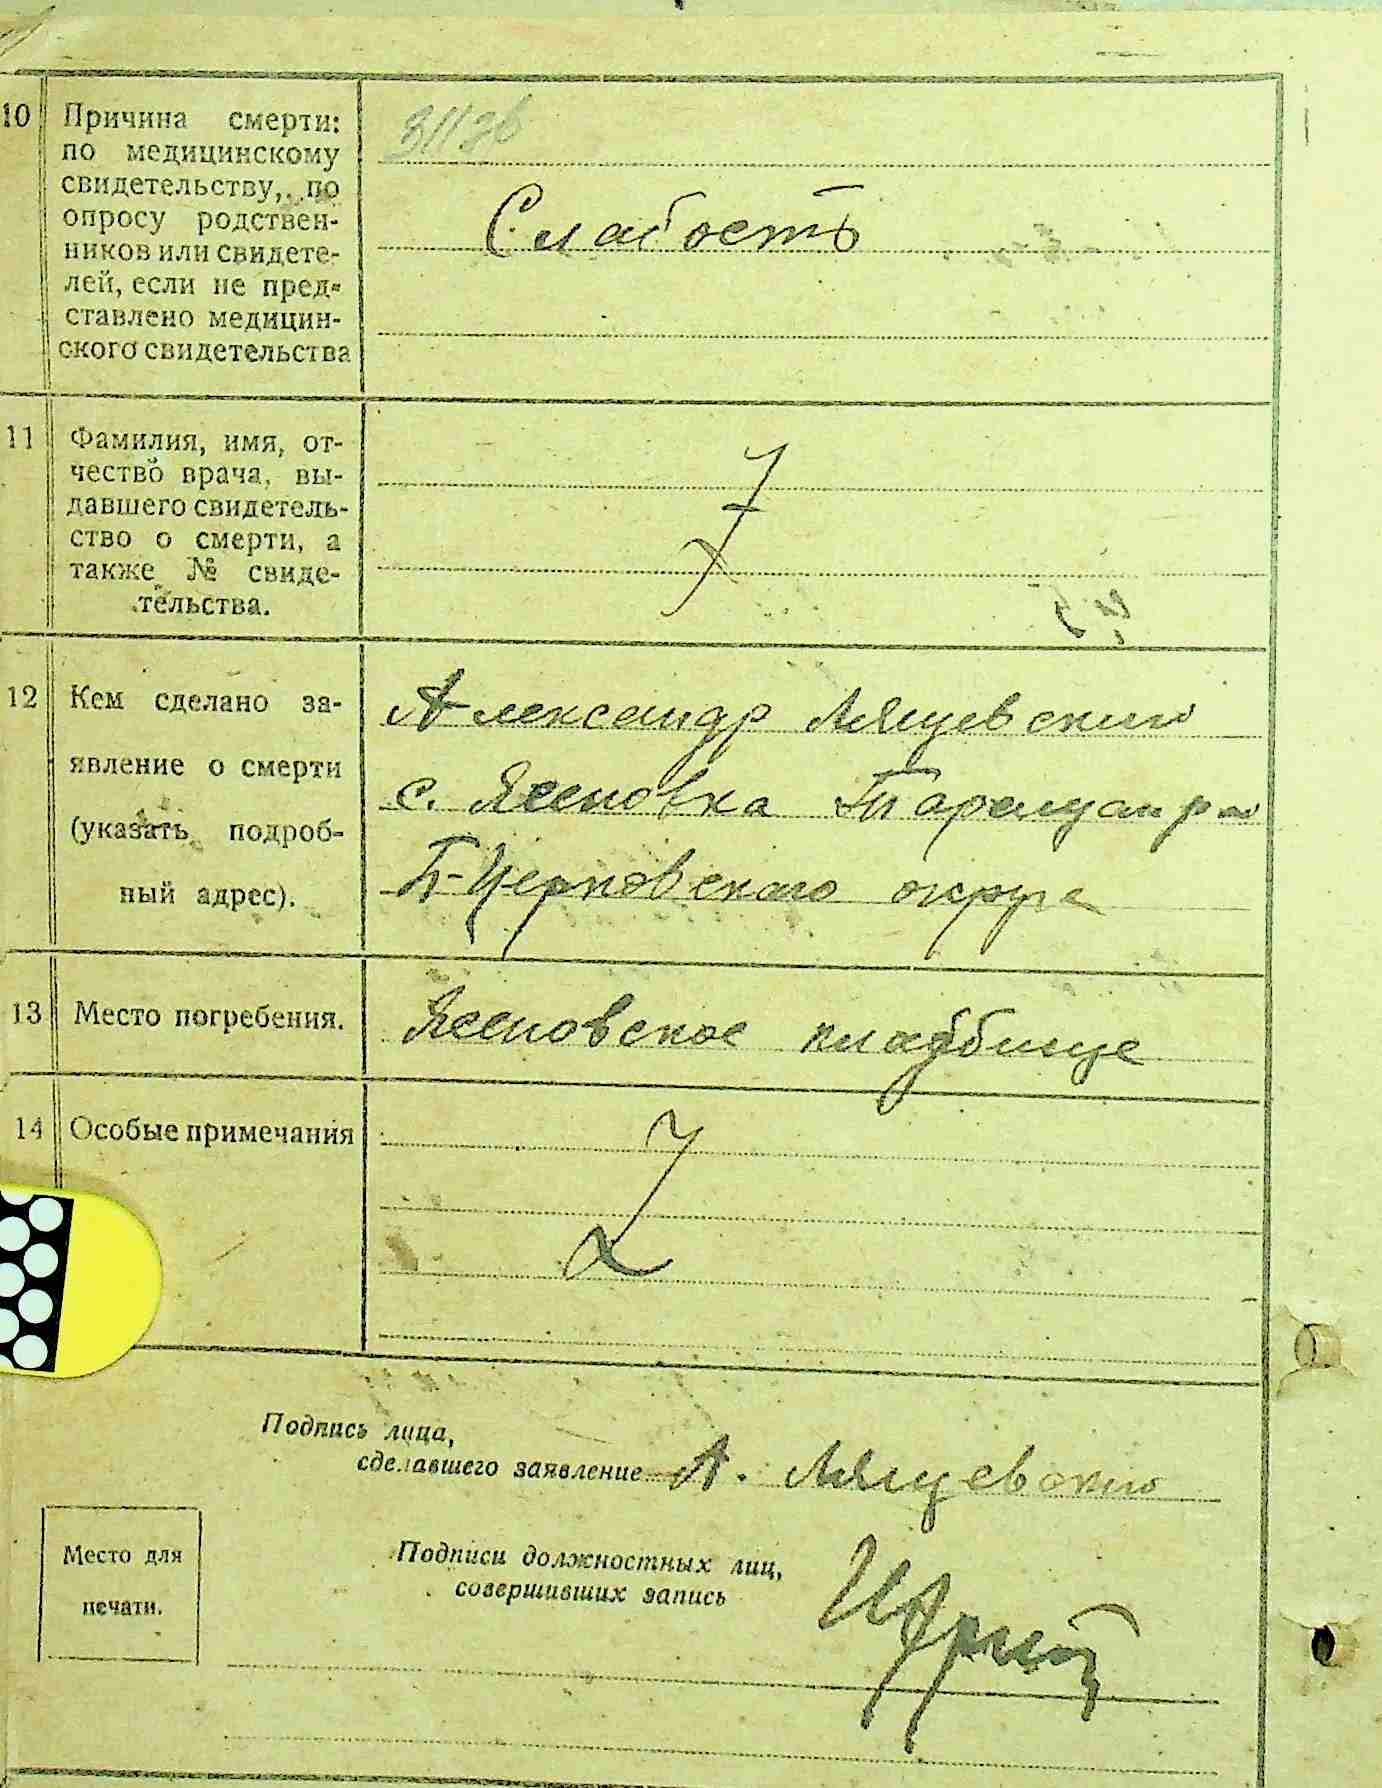 10 Причина смерти:
по медицинскому
свидетельству, по
опросу родствен-
ников или свидете-
лей, если не пред-
ставлено медицин-
ского свидетельства
Слабость
11 Фамилия, имя, от-
чество врача, вы-
давшего свидетель-
ство о смерти, а
также № свиде-
тельства.
12 Кем сделано за-
явление о смерти
(указать подроб-
ный адрес).
Александр
с. Ясеновка
Б-Церковского округа
13 Место погребения.
Ясеновское кладбище
14 Особые примечания
Подпись лица,
сделавшего заявление А.
Место для
печати.
Подписи должностных лиц,
совершивших запись